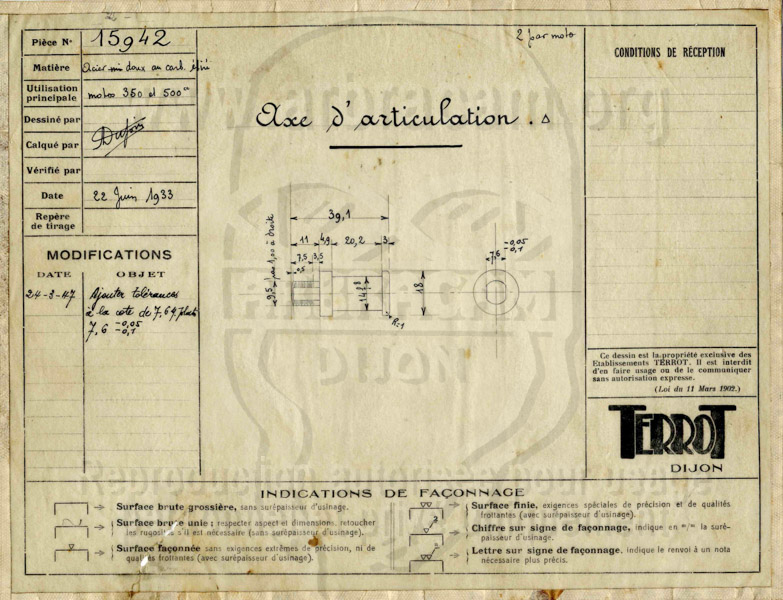 Pièce N° 15942
2 par moto
CONDITIONS DE RÉCEPTION
Matière Acier mi doux au carb. étiré
Utilisation principale motos 350 et 500
Dessiné par
Calqué par
Vérifié par
Date 22 Juin 1933
Repère de tirage
Axe d'articulation.
MODIFICATIONS
DATE OBJET
24-3-47 Ajouter tolérances
à la cote de 7,6
7,6 -0,05 -0,1
39,1
11 4,9 20,2 3
7,5 3,5
0,5
9,5 pas 1,00 à droite
14
18
R=1
7,6 -0,05 -0,1
Ce dessin est la propriété exclusive des
Etablissements TERROT. Il est interdit
d'en faire usage ou de le communiquer
sans autorisation expresse.
(Loi du 11 Mars 1902.)
TERROT
DIJON
INDICATIONS DE FAÇONNAGE
Surface brute grossière, sans surépaisseur d'usinage.
Surface brute unie : respecter aspect et dimensions, retoucher
les rugosités s'il est nécessaire (sans surépaisseur d'usinage).
Surface façonnée sans exigences extrêmes de précision, ni de
qualités frottantes (avec surépaisseur d'usinage).
Surface finie, exigences spéciales de précision et de qualités
frottantes (avec surépaisseur d'usinage).
Chiffre sur signe de façonnage, indique en m/m la suré-
paisseur d'usinage.
Lettre sur signe de façonnage, indique le renvoi à un nota
nécessaire plus précis.